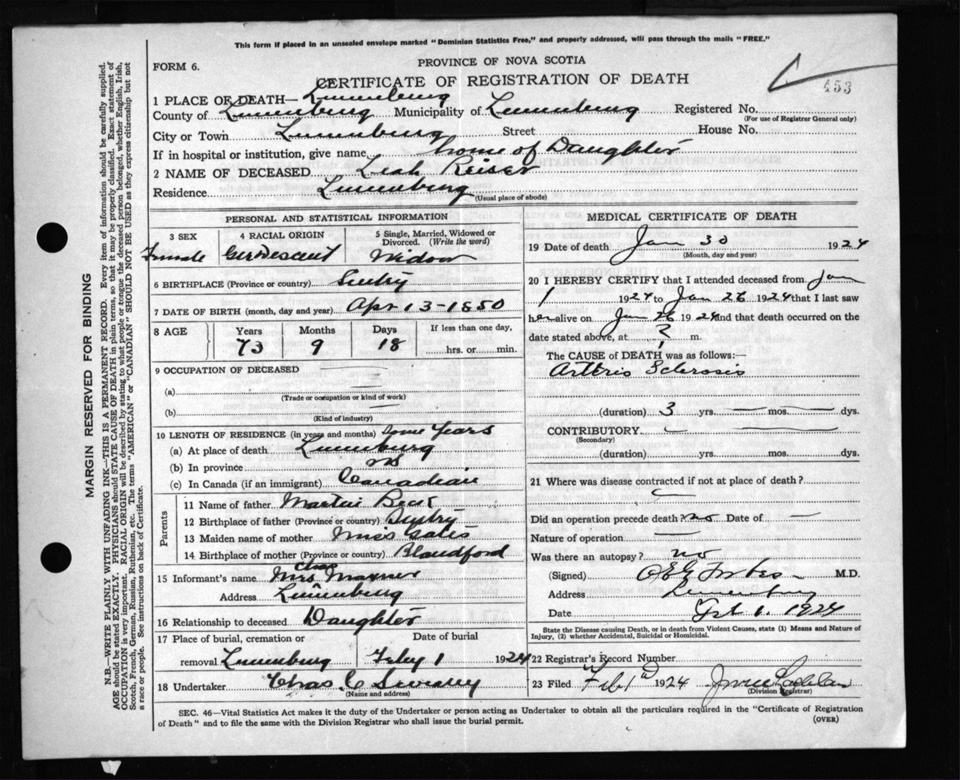 This form if placed in an unsealed envelope marked "Dominion Statistics Free," and properly addressed, will pass through the mails "FREE."
FORM 6.
PROVINCE OF NOVA SCOTIA
CERTIFICATE OF REGISTRATION OF DEATH
453
1 PLACE OF DEATH— Lunenburg
County of Lunenburg Municipality of Lunenburg Registered No.
(For use of Registrar General only)
City or Town Lunenburg Street House No.
If in hospital or institution, give name home of Daughter
2 NAME OF DECEASED Leah Reiser
Residence Lunenburg
(Usual place of abode)
PERSONAL AND STATISTICAL INFORMATION
3 SEX 4 RACIAL ORIGIN 5 Single, Married, Widowed or Divorced. (Write the word)
Female Ger Descent Widow
6 BIRTHPLACE (Province or country)
7 DATE OF BIRTH (month, day and year) Apr 13-1850
8 AGE Years Months Days If less than one day,
73 9 18 hrs. or min.
9 OCCUPATION OF DECEASED
(a)
(Trade or occupation or kind of work)
(b)
(Kind of industry)
10 LENGTH OF RESIDENCE (in years and months) Some Years
(a) At place of death Lunenburg
(b) In province NS
(c) In Canada (if an immigrant) Canadian
Parents
11 Name of father Martin Beck
12 Birthplace of father (Province or country)
13 Maiden name of mother Miss Gates
14 Birthplace of mother (Province or country) Blandford
15 Informant's name Mrs Chas Masner
Address Lunenburg
16 Relationship to deceased Daughter
17 Place of burial, cremation or Date of burial
removal Lunenburg Feby 1 1924
18 Undertaker Chas C
(Name and address)
MEDICAL CERTIFICATE OF DEATH
19 Date of death Jan 30 1924
(Month, day and year)
20 I HEREBY CERTIFY that I attended deceased from Jan
1 1924 to Jan 26 1924 that I last saw
her alive on Jan 26 1924 and that death occurred on the
date stated above, at ? m.
The CAUSE of DEATH was as follows:—
Arterio Sclerosis
(duration) 3 yrs. — mos. — dys.
CONTRIBUTORY —
(Secondary)
(duration) — yrs. — mos. — dys.
21 Where was disease contracted if not at place of death?
Did an operation precede death? no Date of —
Nature of operation —
Was there an autopsy? no
(Signed) M.D.
Address Lunenburg
Date 1. 1924
State the Disease causing Death, or in death from Violent Causes, state (1) Means and Nature of
Injury, (2) whether Accidental, Suicidal or Homicidal.
22 Registrar's Record Number
23 Filed Feb 1 1924
(Division Registrar)
SEC. 46—Vital Statistics Act makes it the duty of the Undertaker or person acting as Undertaker to obtain all the particulars required in the "Certificate of Registration
of Death" and to file the same with the Division Registrar who shall issue the burial permit.
(OVER)
MARGIN RESERVED FOR BINDING
N.B.—WRITE PLAINLY WITH UNFADING INK—THIS IS A PERMANENT RECORD. Every item of information should be carefully supplied.
AGE should be stated EXACTLY. PHYSICIANS should STATE CAUSE OF DEATH in plain terms, so that it may be properly classified. Exact statement of
OCCUPATION is very important. RACIAL ORIGIN will be described by stating to what people or tongue the deceased person belonged, whether English, Irish,
Scotch, French, German, Russian, Ruthenian, etc. The terms "AMERICAN" or "CANADIAN" SHOULD NOT BE USED as they express citizenship but not
a race or people. See instructions on back of Certificate.